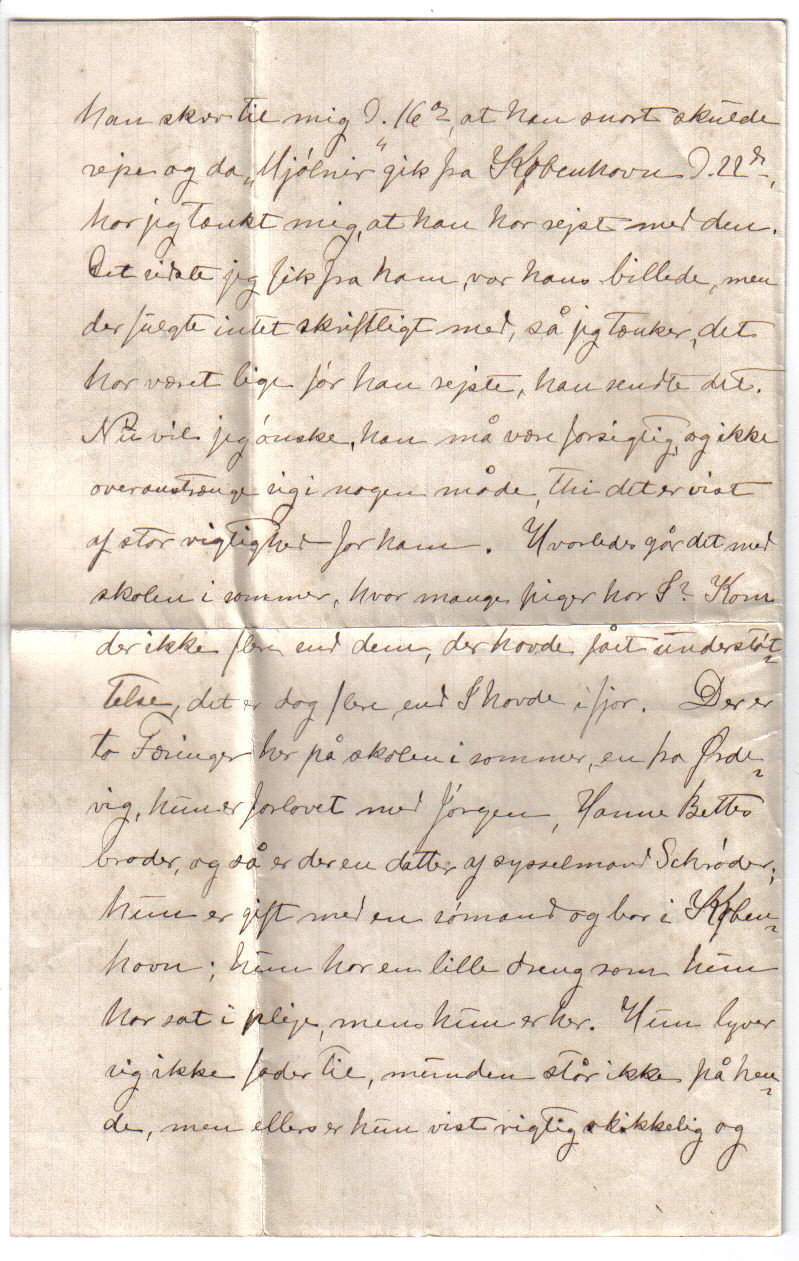 han skrev til mig d. 16de, at han snart skulde
rejse og da „Mjölnir“ gik fra København d. 22de,
har jeg tænkt mig, at han har rejst med den.
Det sidste jeg fik fra ham, var hans billede, men
der fulgte intet skriftligt med, så jeg tænker, det
har været lige før han rejste, han sendte det.
Nu vil jeg ønske, han må være forsigtig, og ikke
overanstrænge sig i nogen måde, thi det er vist
af stor vigtighed for ham. Hvorledes går det med
skolen i sommer, hvor mange piger har I? Kom
der ikke flere end dem, der havde fået understøt-
telse, det er dog flere end I havde i fjor. Der er
to Færinger her på skolen i sommer, en fra Ørde-
vig, hun er forlovet med Jörgen, Hanne Bettes
broder, og så er der en datter af sysselmand Schrøder;
hun er gift med en sømand og bor i Køben-
havn; hun har en lille dreng som hun
har sat i pleje, mens hun er her. Hun lyver
sig ikke fader til, munden står ikke på hen-
de, men ellers er hun vist rigtig skikkelig og